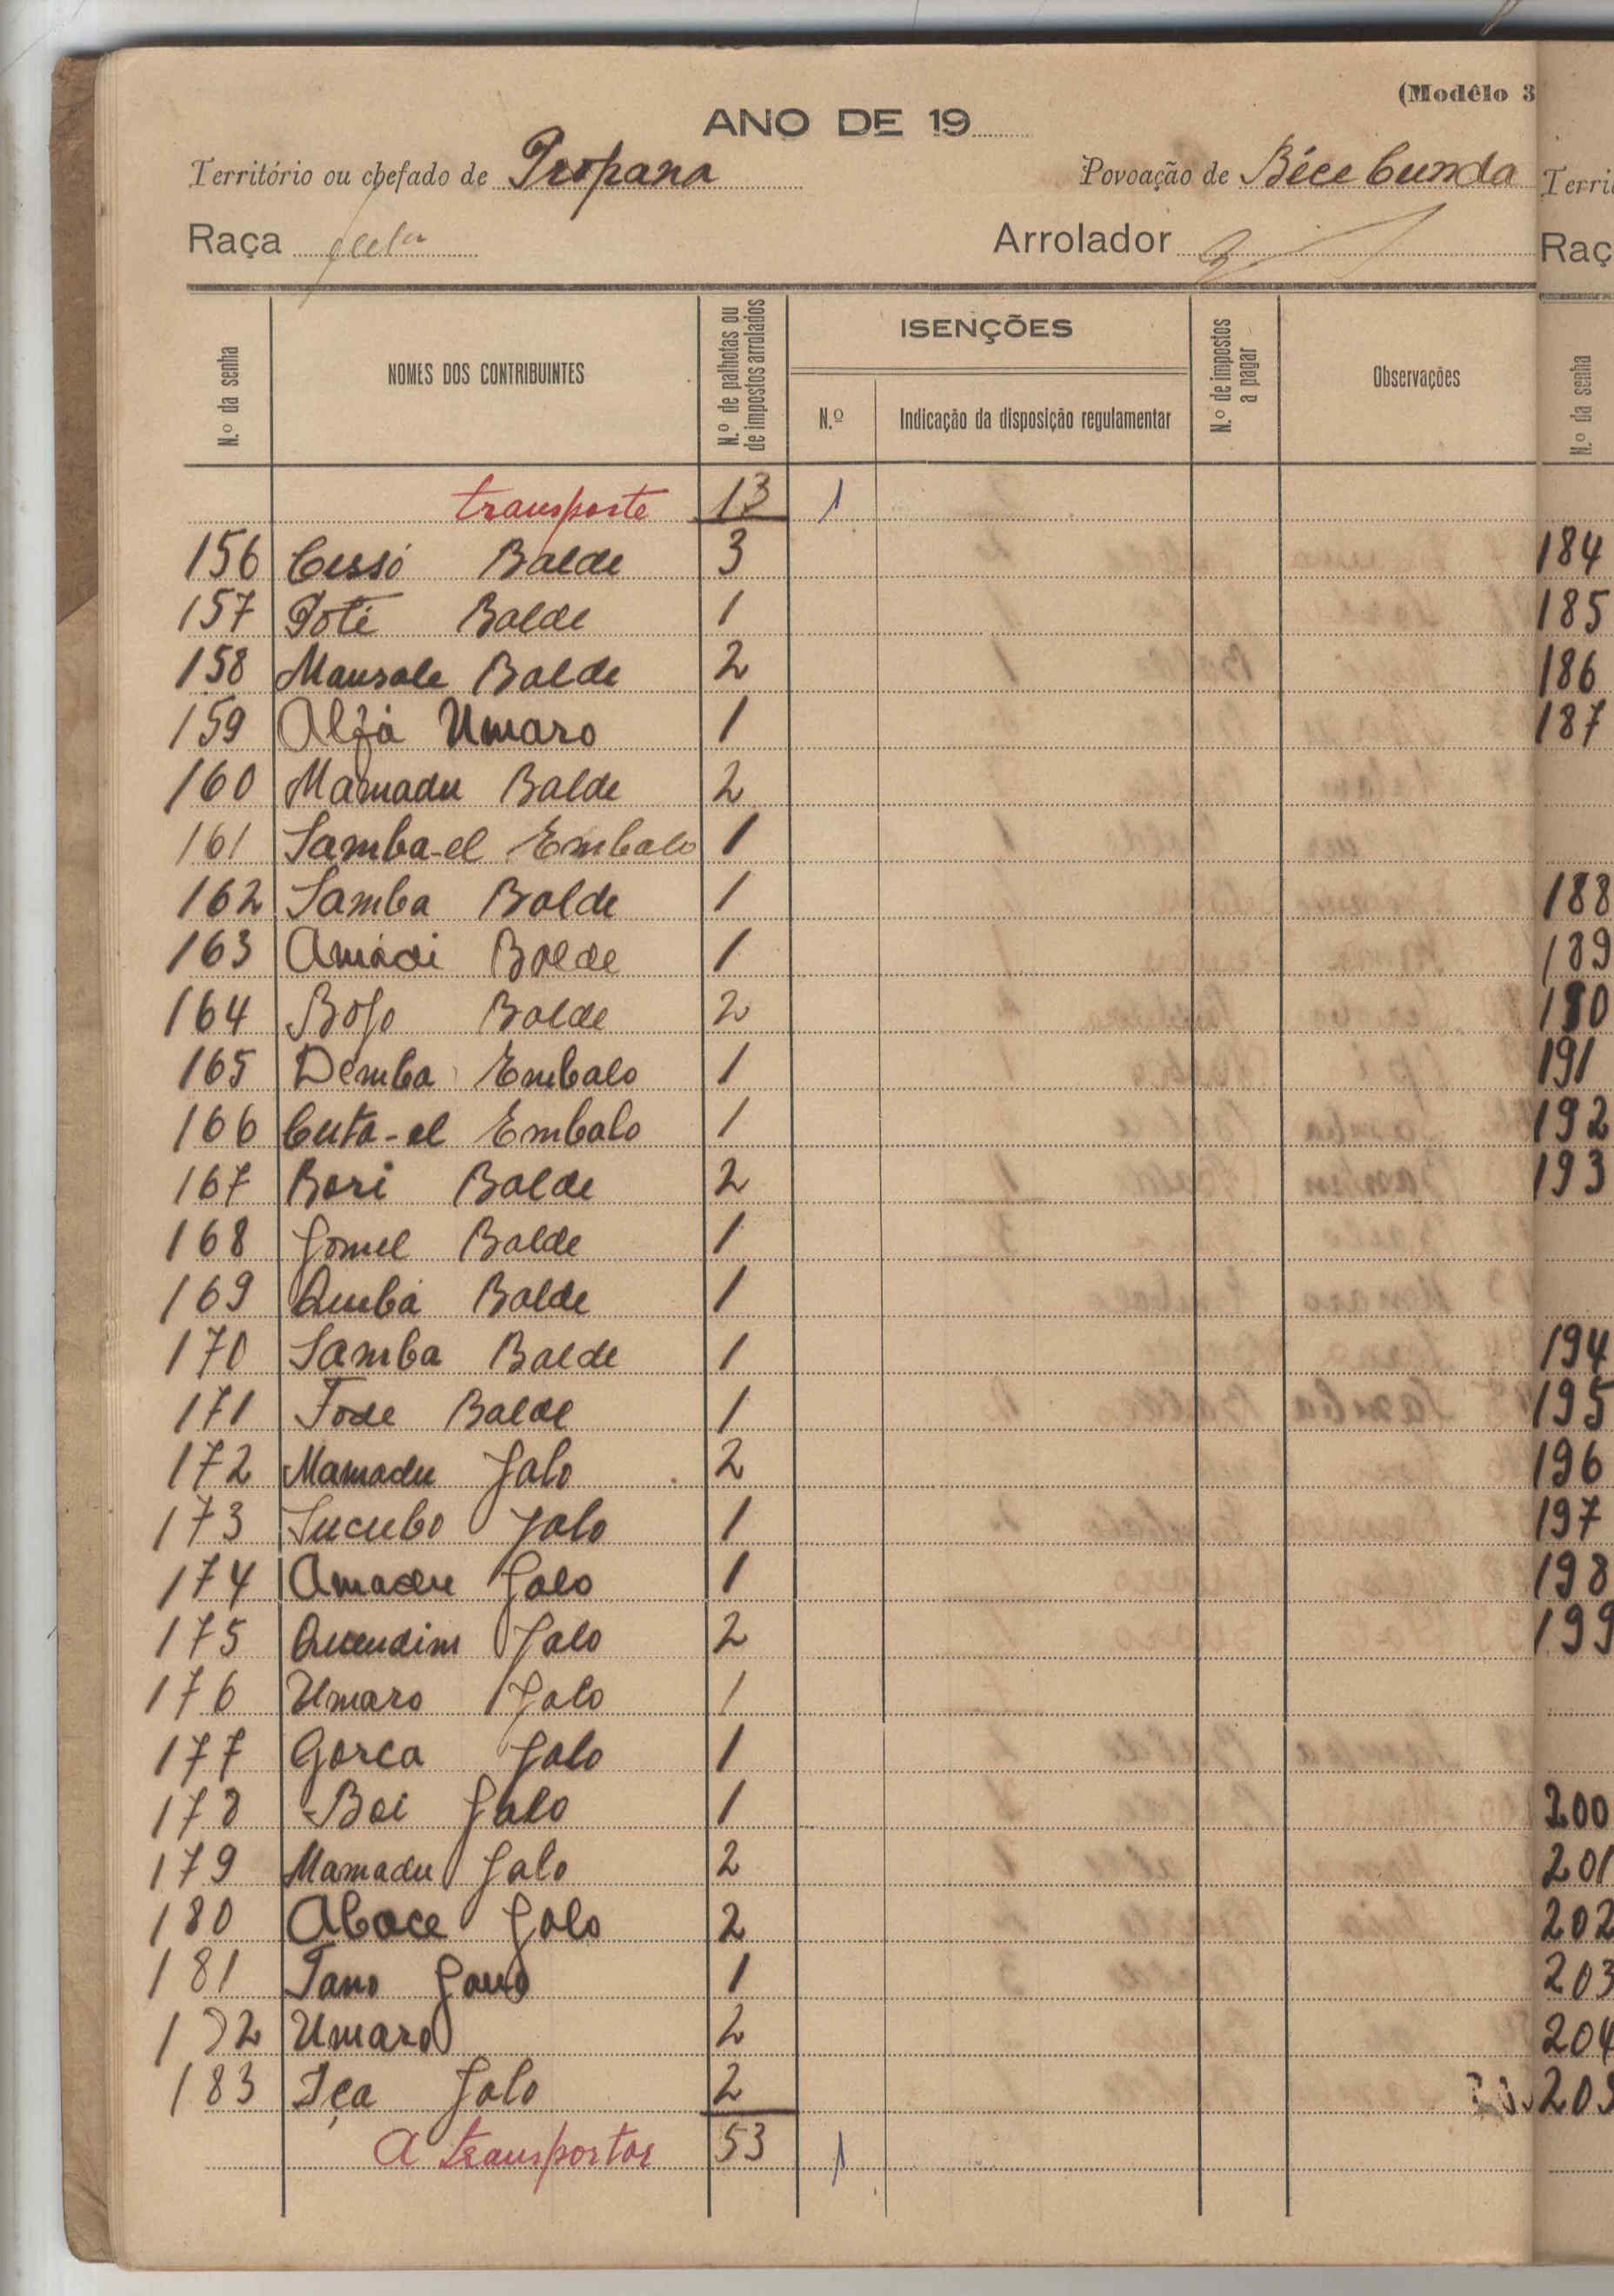 (Modêlo 3
ANO DE 19
Território ou chefado de Propana Povoação de Béce Cunda
Raça fula Arrolador
N.º da senha
NOMES DOS CONTRIBUINTES
N.º de palhotas ou de impostos arrolados
ISENÇÕES
N.º
Indicação da disposição regulamentar
N.º de impostos a pagar
Observações
transporte 13 1
156 Cessó Balde 3
157 Poté Balde 1
158 Mansale Balde 2
159 Alfá Umaro 1
160 Mamadu Balde 2
161 Samba-el Embalo 1
162 Samba Balde 1
163 Amádi Balde 1
164 Bofo Balde 2
165 Demba Embalo 1
166 Cuta-el Embalo 1
167 Bori Balde 2
168 Jomel Balde 1
169 Qumbá Balde 1
170 Samba Balde 1
171 Fode Balde 1
172 Mamadu Jalo 2
173 Sucubo Jalo 1
174 Amadu Jalo 1
175 Quendim Jalo 2
176 Umaro Jalo 1
177 Gorca Jalo 1
178 Boi Jalo 1
179 Mamadu Jalo 2
180 Aboce Jalo 2
181 Tano Jano 1
182 Umaro 2
183 Iça Jalo 2
A transportar 53 1
Terri
Raç
N.º da senha
184
185
186
187
188
189
190
191
192
193
194
195
196
197
198
199
200
201
202
203
204
205